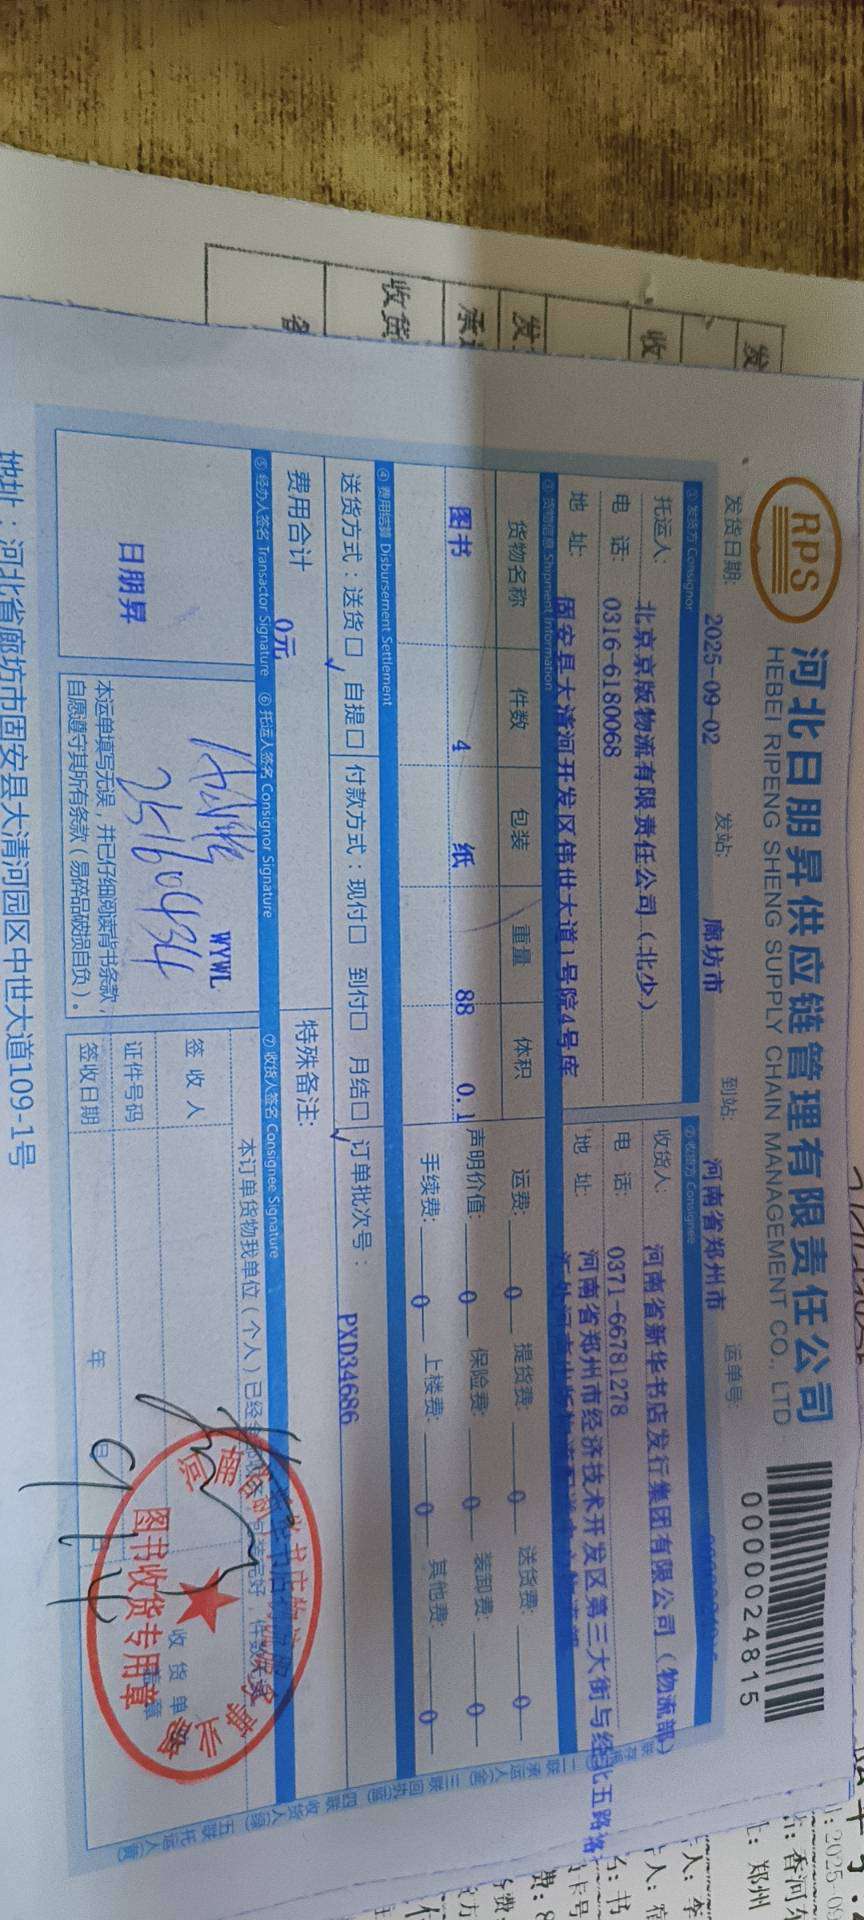 RPS
河北日朋昇供应链管理有限责任公司
HEBEI RIPENG SHENG SUPPLY CHAIN MANAGEMENT CO., LTD
000024815
发货日期: 2025-09-02 发站: 廊坊市 到站: 河南省郑州市 运单号:
① 发货方 Consignor ② 收货方 Consignee
托运人: 北京京版物流有限责任公司（北少） 收货人: 河南省新华书店发行集团有限公司（物流部）
电 话: 0316-6180068 电 话: 0371-66781278
地 址: 固安县大清河开发区伟世大道1号院4号库 地 址: 河南省郑州市经济技术开发区第三大街与经北五路
③ 货物信息 Shipment Information
货物名称 件数 包装 重量 体积 运费: 0 提货费: 0 送货费: 0
图书 4 纸 88 0.1 声明价值: 0 保险费: 0 装卸费: 0
手续费: 0 上楼费: 0 其他费: 0
④ 费用结算 Disbursement Settlement
送货方式：送货□ 自提□ 付款方式：现付□ 到付□ 月结□ 订单批次号： PXD34686
费用合计 0元 特殊备注:
⑤ 经办人签名 Transactor Signature ⑥ 托运人签名 Consignor Signature ⑦ 收货人签名 Consignee Signature
日朋昇
WYWL
本运单填写无误，并已仔细阅读背书条款，
自愿遵守其所有条款（易碎品破损自负）。
本订单货物我单位（个人）已经
签 收 人
证件号码
签收日期: 年 月 日
收 货 单
图书收货专用章
地址：河北省廊坊市固安县大清河园区中世大道109-1号
收货
郑州